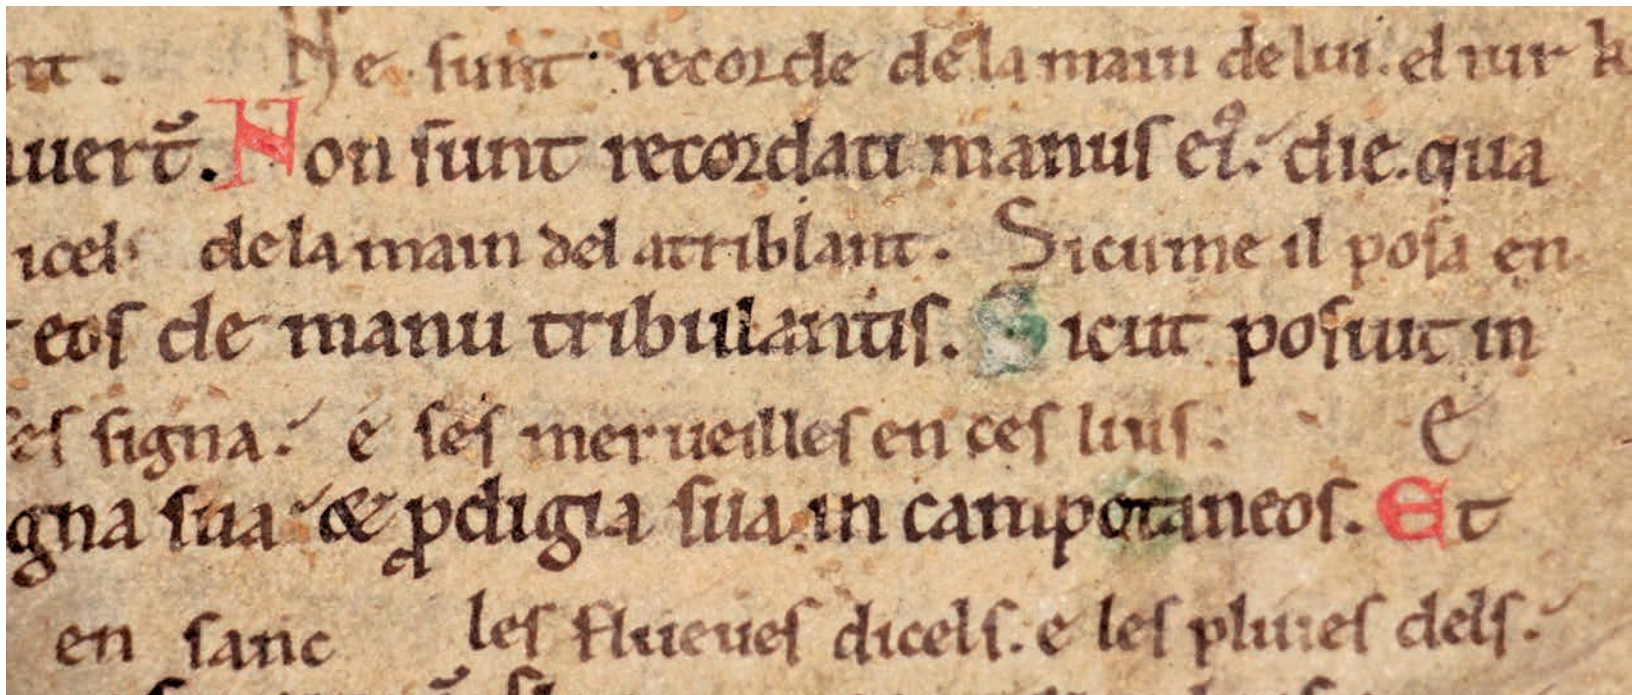 nt. Ne sunt recorde de la main de lui. el iur k
auert̄. Non sunt recordati manus ei9. die. qua
icels de la main del atriblant. Sicume il posa en
eos de manu tribulantis. Sicut posuit in
es signa. e ses merueilles en ces lius. E
gna sua & pdigia sua in campotaneos. Et
en sanc les flueues dicels. e les pluies dels.